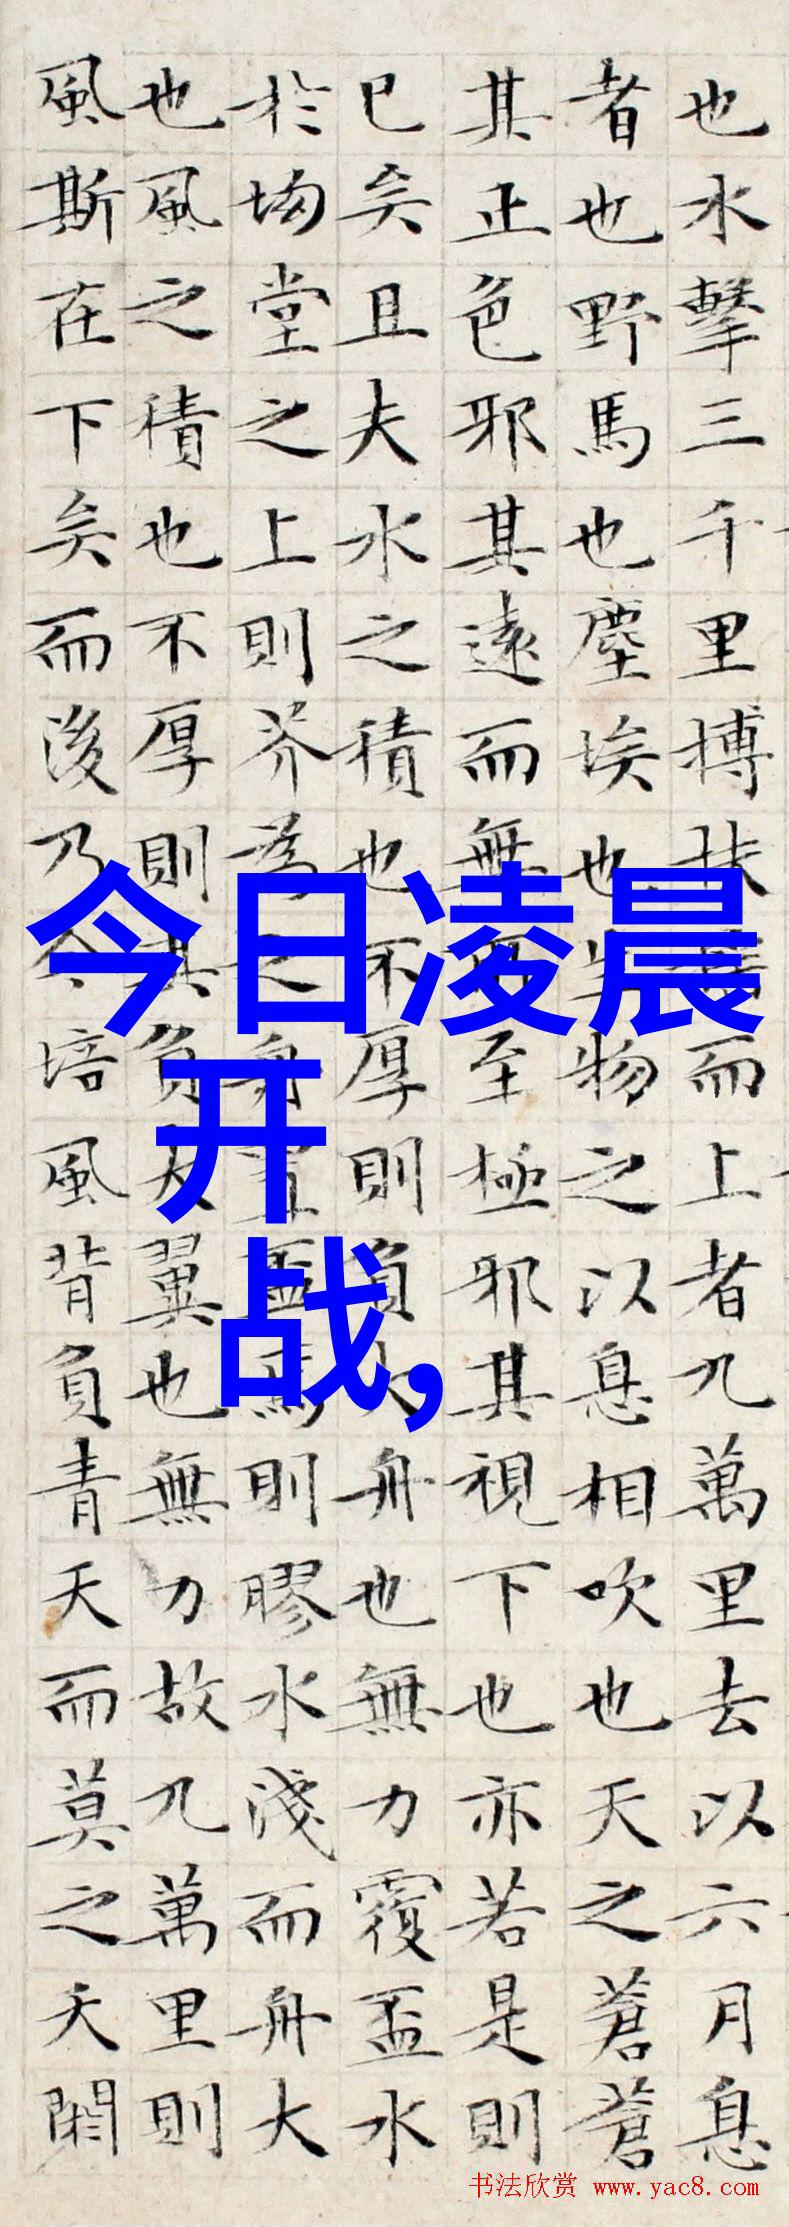 也水擊三千里搏扶搖而上者九萬里去以六月息
者也野馬也塵埃也生物之以息相吹也天之蒼蒼
其正色邪其遠而無所至極邪其視下也亦若是則
已矣且夫水之積也不厚則負大舟也無力覆盃水
於坳堂之上則芥為之舟置盃焉則膠水淺而舟大
也風之積也不厚則其負大翼也無力故九萬里則
風斯在下矣而後乃今培風背負青天而莫之夭閼
今日凌晨
开
战,
书法欣赏 www.yac8.com